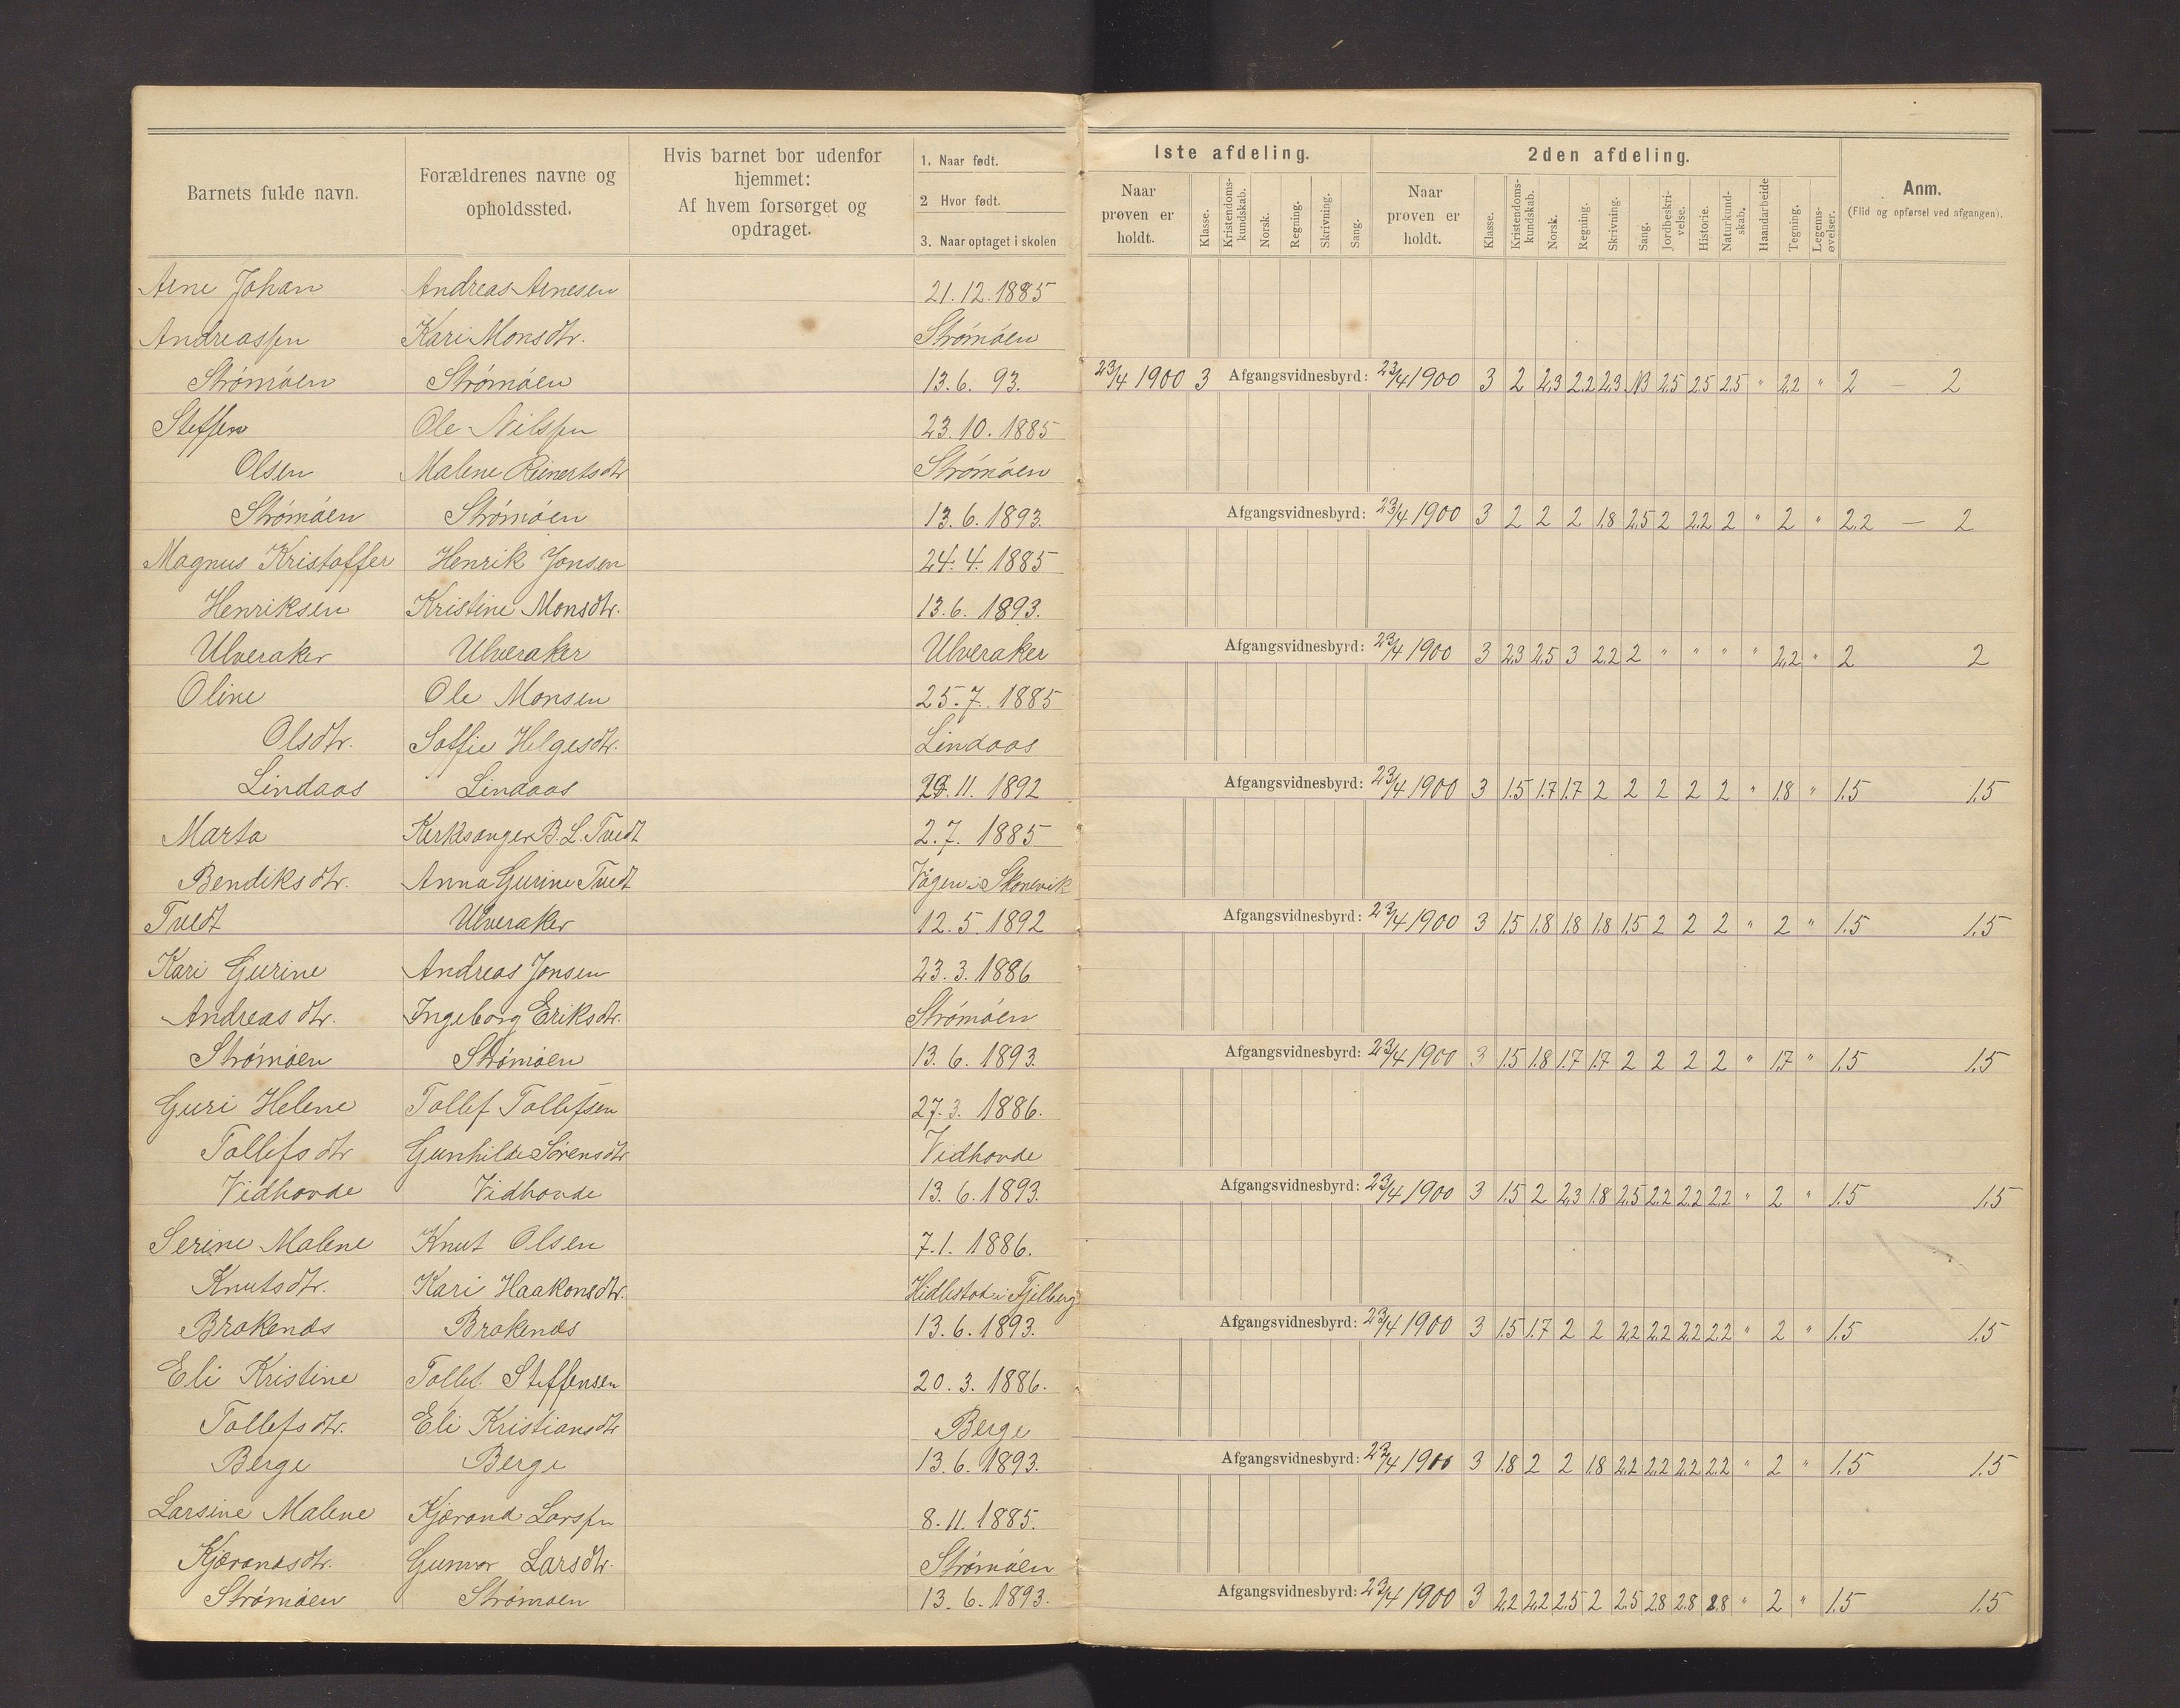 Barnets fulde navn.
Forældrenes navne og opholdssted.
Hvis barnet bor udenfor hjemmet: Af hvem forsørget og opdraget.
1. Naar født.
2 Hvor født.
3. Naar optaget i skolen
1ste afdeling.
Naar prøven er holdt.
Klasse.
Kristendoms-kundskab.
Norsk.
Regning.
Skrivning.
Sang.
2den afdeling.
Naar prøven er holdt.
Klasse.
Kristendoms-kundskab.
Norsk.
Regning.
Skrivning.
Sang.
Jordbeskri-velse.
Historie.
Naturkund-skab.
Haandarbeide
Tegning.
Legems-øvelser.
Anm.
(Flid og opførsel ved afgangen).
Arne Johan Andreas Arnesen 21.12.1885
Andreassen Kari Monsdtr. Strømøen
Strømøen Strømøen 13.6. 93. 23/4 1900 3 Afgangsvidnesbyrd: 23/4 1900 3 2 2,3 2,2 2,3 N3 2,5 2,5 2,5 " 2,2 " 2 — 2
Steffen Ole Nilssen 23.10.1885
Olsen Malene Reinertsdtr Strømøen
Strømøen Strømøen 13.6.1893. Afgangsvidnesbyrd: 23/4 1900 3 2 2 2 1.8 2.5 2 2.2 2 " 2 " 2.2 — 2
Magnus Kristoffer Henrik Jonsen 24.4.1885
Henriksen Kristine Monsdtr. 13.6.1893.
Ulveraker Ulveraker Ulveraker Afgangsvidnesbyrd: 23/4 1900 3 2.3 2.5 3 2.2 2 " " " " 2.2 " 2 2
Oline Ole Monsen 25.7.1885
Olsdtr. Soffie Helgesdtr. Lindaas
Lindaas Lindaas 29.11.1892 Afgangsvidnesbyrd: 23/4 1900 3 1.5 1.7 1.7 2 2 2 2 2 " 1.8 " 1.5 1.5
Marta Kirkesanger B. L. Tvedt 2.7.1885
Bendiksdtr. Anna Gurine Tvedt Vågen i Skonevik
Tvedt Ulveraker 12.5.1892 Afgangsvidnesbyrd: 23/4 1900 3 1.5 1.8 1.8 1.8 1.5 2 2 2 " 2 " 1.5 1.5
Kari Gurine Andreas Jonsen 23.3.1886
Andreasdtr. Ingeborg Eriksdtr. Strømøen
Strømøen Strømøen 13.6.1893. Afgangsvidnesbyrd: 23/4 1900 3 1.5 1.8 1.7 1.7 2 2 2 2 " 1.7 " 1.5 1.5
Guri Helene Tollef Tollefsen 27.3.1886.
Tollefsdtr Gunhilde Sørensdtr Vidhovde
Vidhovde Vidhovde 13.6.1893. Afgangsvidnesbyrd: 23/4 1900 3 1.5 2 2.3 1.8 2.5 2.2 2.2 2.2 " 2 " 1.5 1.5
Serine Malene Knut Olsen 7.1.1886.
Knutsdtr. Kari Haakonsdtr. i Fjelberg
Brakenæs Brakenæs 13.6.1893. Afgangsvidnesbyrd: 23/4 1900 3 1.5 1.7 2 2 2.2 2.2 2.2 2.2 " 2 " 1.5 1.5
Eli Kristine Tollef Steffensen 20.3.1886.
Tollefsdtr. Eli Kristiansdtr Berge
Berge Berge 13.6.1893. Afgangsvidnesbyrd: 23/4 1900 3 1.8 2 2 1.8 2.2 2.2 2.2 2.2 " 2 " 1.5 1.5
Larsine Malene Kjærand Larssen 8.11.1885.
Kjærandsdtr. Gunvor Larsdtr. Strømøen
Strømøen Strømøen 13.6.1893. Afgangsvidnesbyrd: 23/4 1900 3 2.2 2.2 2.5 2 2.5 2.8 2.8 2.8 " 2 " 1.5 1.5